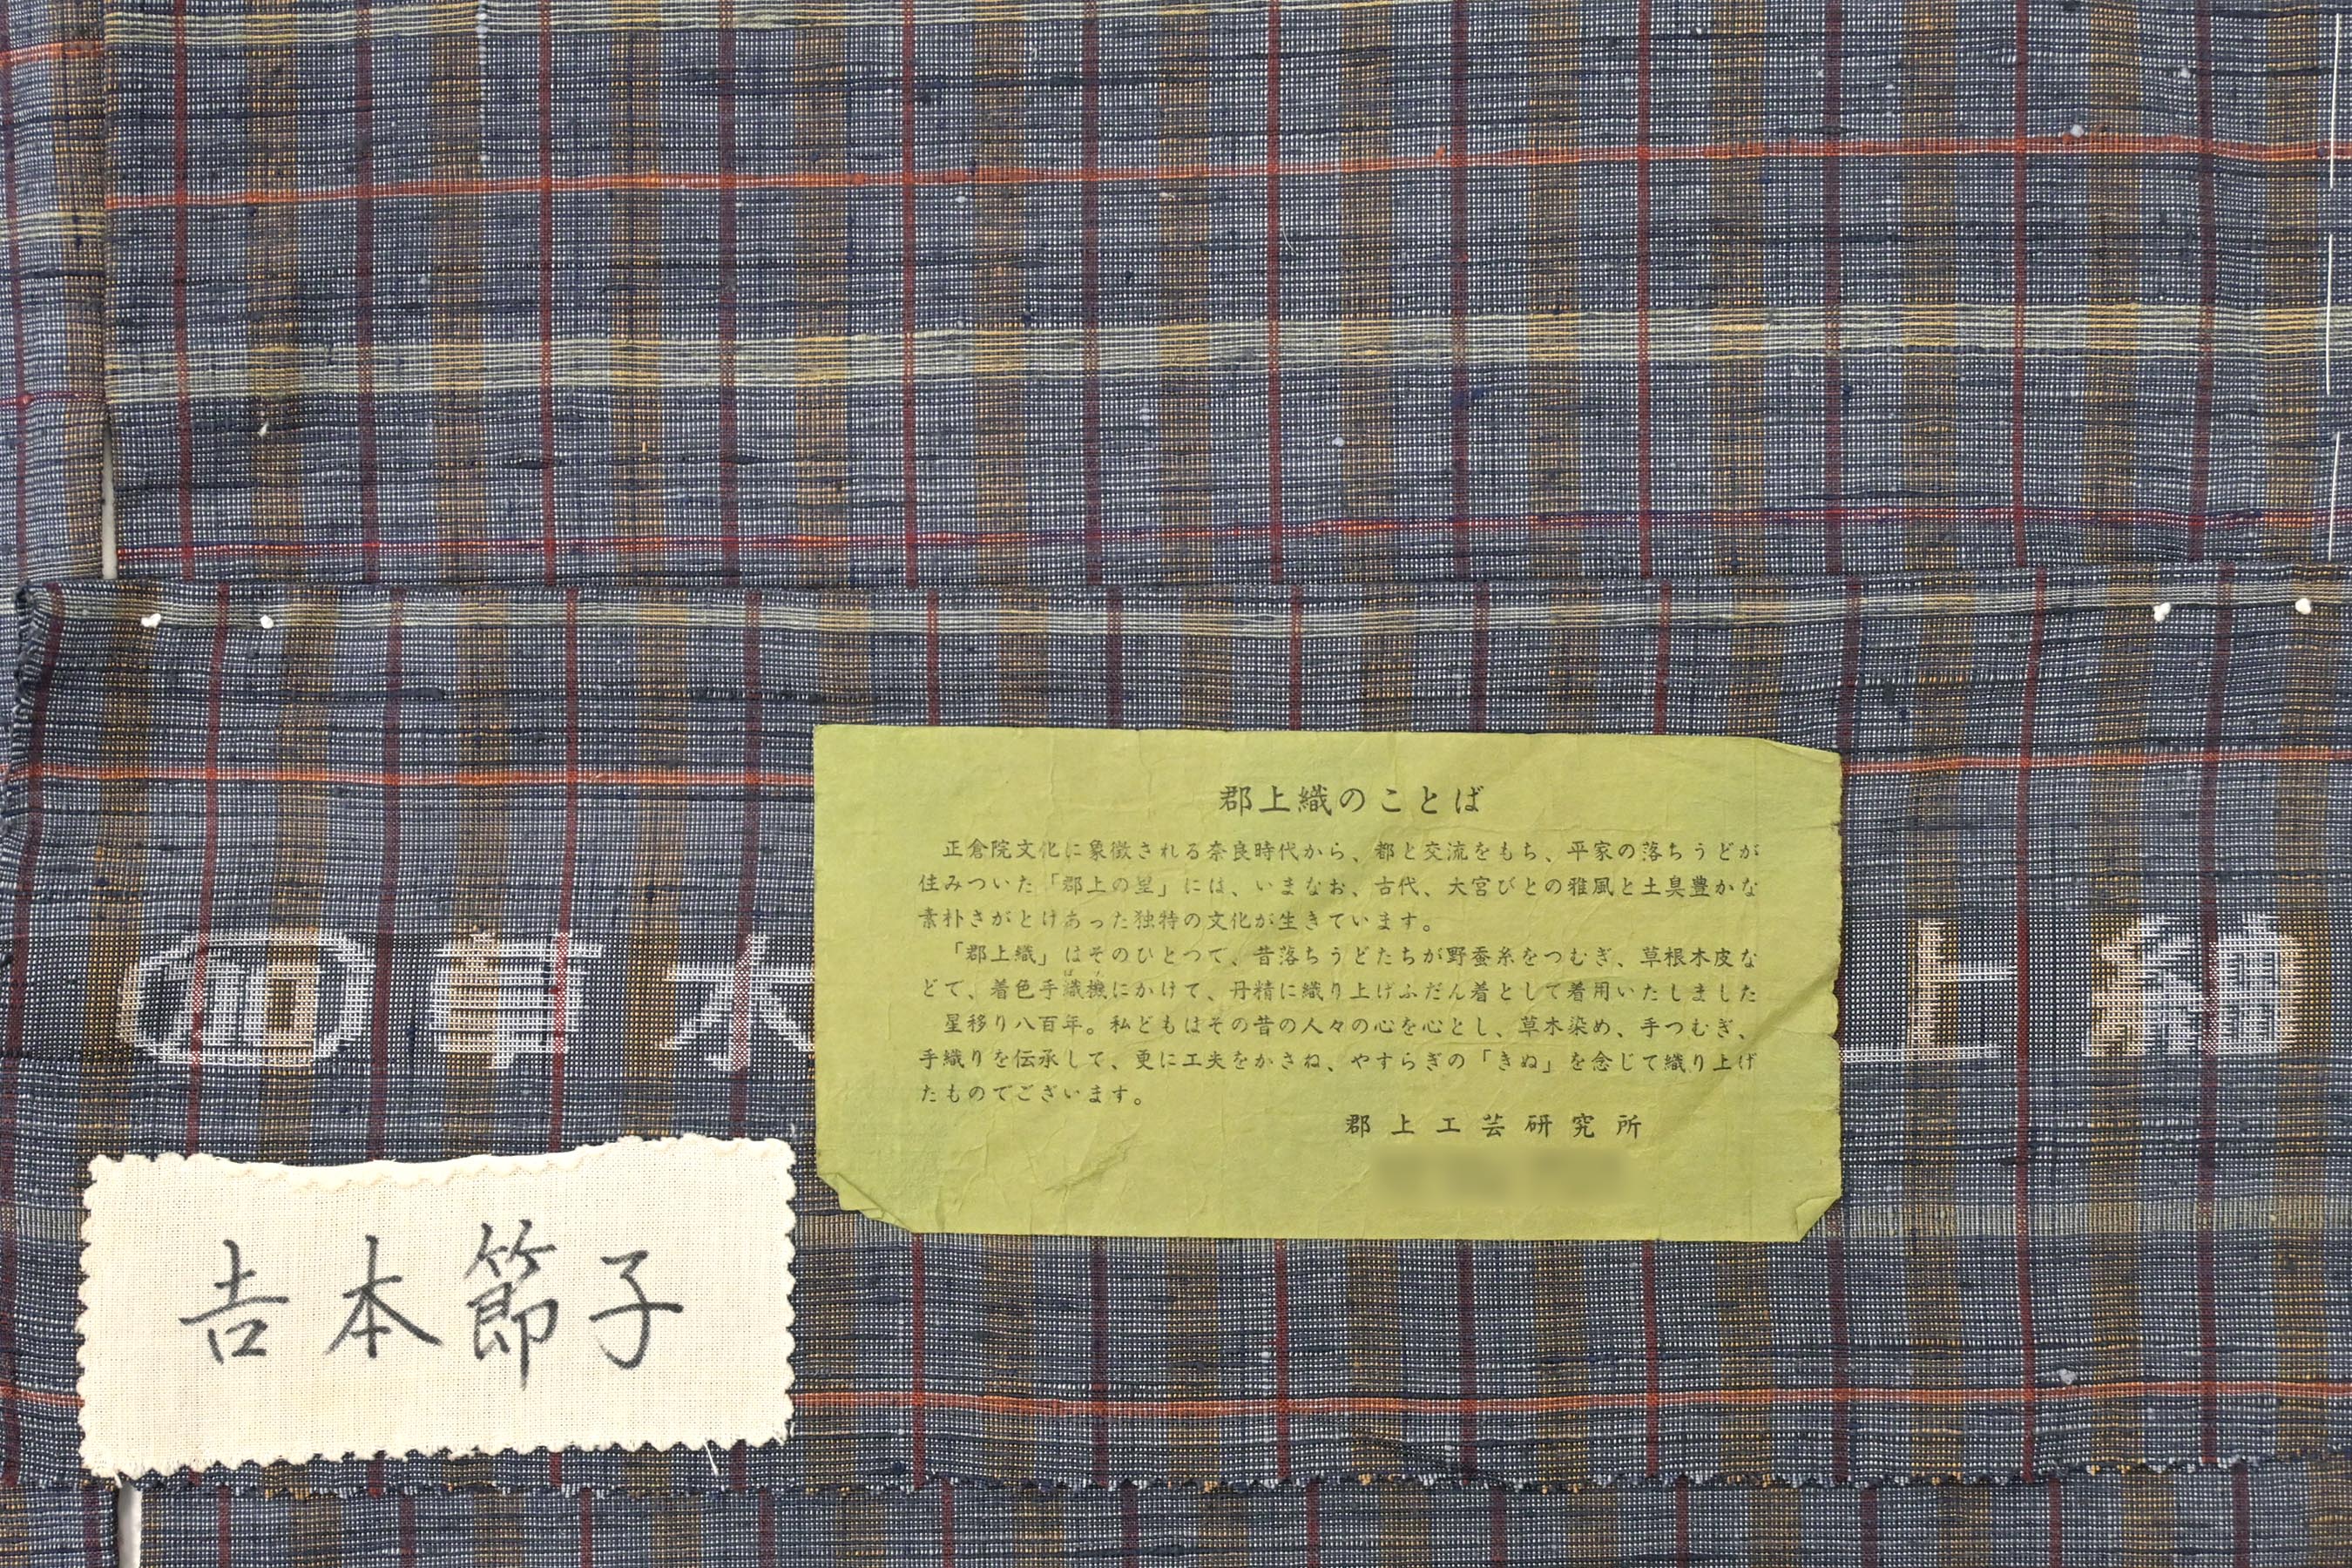 郡上織のことば
正倉院文化に象徴される奈良時代から、都と交流をもち、平家の落ちうどが
住みついた「郡上の里」には、いまなお、古代、大宮びとの雅風と土臭豊かな
素朴さがとけあった独特の文化が生きています。
「郡上織」はそのひとつで、昔落ちうどたちが野蚕糸をつむぎ、草根木皮な
どで、着色手織機にかけて、丹精に織り上げふだん着として着用いたしました
星移り八百年。私どもはその昔の人々の心を心とし、草木染め、手つむぎ、
手織りを伝承して、更に工夫をかさね、やすらぎの「きぬ」を念じて織り上げ
たものでございます。
郡上工芸研究所
草木 上紬
吉本節子